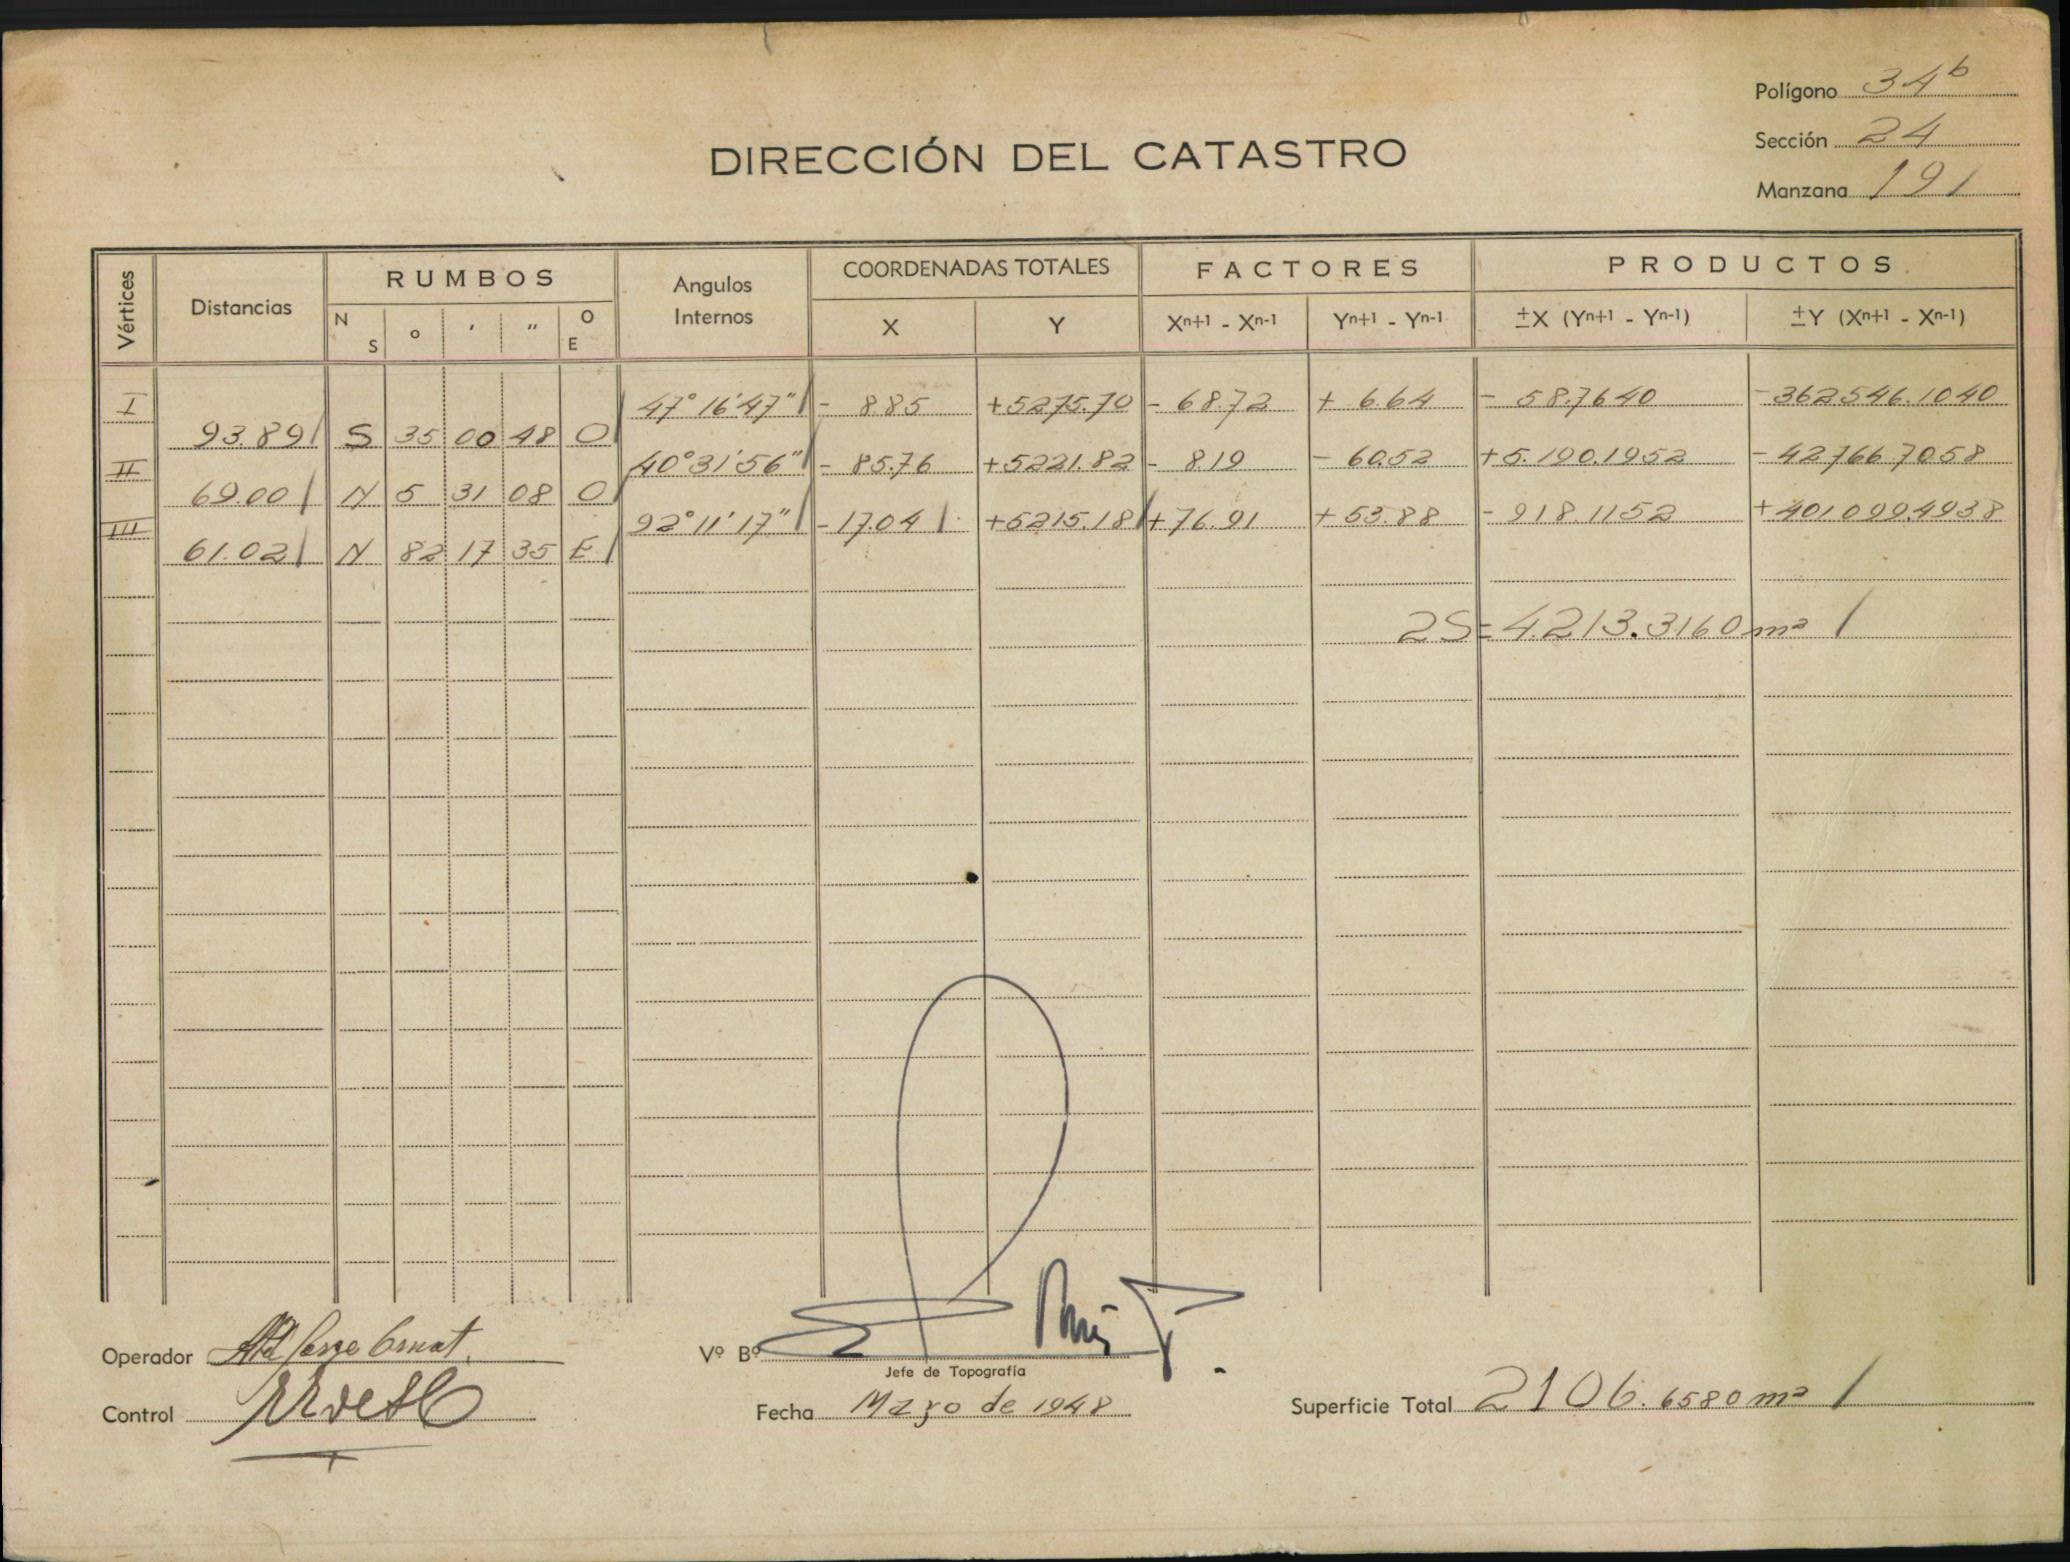 Polígono 34b
Sección 24
Manzana 191
DIRECCIÓN DEL CATASTRO
Vértices Distancias RUMBOS Angulos Internos COORDENADAS TOTALES FACTORES PRODUCTOS
N S o ′ ″ O E X Y Xn+1 - Xn-1 Yn+1 - Yn-1 ±X (Yn+1 - Yn-1) ±Y (Xn+1 - Xn-1)
I 47° 16' 47" - 8.85 +5275.70 - 68.72 + 6.64 - 58.7640 -362.546.1040
93.89 S 35 00 48 O
II 40° 31' 56" - 85.76 +5221.82 - 8.19 - 60.52 +5.190.1952 - 42.766.7058
69.00 N 5 31 08 O
III 92° 11' 17" -17.04 +5215.18 +76.91 +53.88 - 918.1152 +401.099.4938
61.02 N 82 17 35 E
2S=4.213.3160 m²
Operador
Vº Bº
Jefe de Topografía
Control
Fecha Marzo de 1948
Superficie Total 2106.6580 m²